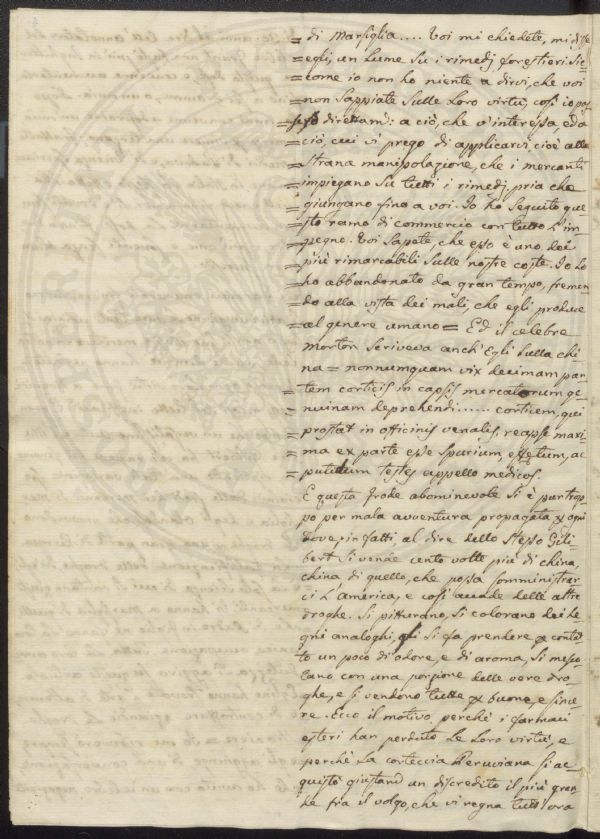 = di Marsiglia.... Voi mi chiedete, mi disse
= egli, un lume su i rimedj forestieri. Sic-
= come io non ho niente a dirvi, che voi
= non sappiate sulle loro virtù, così io pas-
= so direttam: a ciò, che v'interessa, ed a
= ciò, cui vi prego di applicarvi, cioè alla
= strana manipolazione, che i mercanti
= impiegano su tutti i rimedj, pria che
= giungano fino a voi. Io ho seguito que-
= sto ramo di commercio con tutto l'im-
= pegno. Voi sapete, che esso è uno dei
= più rimarcabili sulle nostre coste. Io lo
= ho abbandonato da gran tempo, fremen-
= do alla vista dei mali, che egli produce
= al genere umano = Ed il celebre
Morton scriveva anch'egli sulla chi-
na = nonnumquam vix decimam par-
= tem corticis in capsis mercatorum ge-
= nuinam deprehendi...... corticem, qui
= prostat in officinis venalis, reapse maxi-
= ma ex parte esse spurium, effetum, ac
= putidum testes appello medicos.
E questa frode abominevole si è purtrop-
po per mala avventura propagata ogni
dove, infatti al dire dello stesso Gili-
bert si vende cento volte più di china,
china di quello, che possa somministrar-
ci l'America, e così accade delle altre
droghe. Si pitturano, si colorano dei le-
gni analoghi, si fa prendere contat-
to un poco di odore, e di aroma, si mesco-
lano con una porzione delle vere dro-
ghe, e si vendono tutte buone, e since-
re. Ecco il motivo, perchè i farmaci
esteri han perduto le loro virtù, e
perchè la corteccia Peruviana si ac-
quistò un discredito il più gran-
de fra il volgo, che vi regna tutt'ora